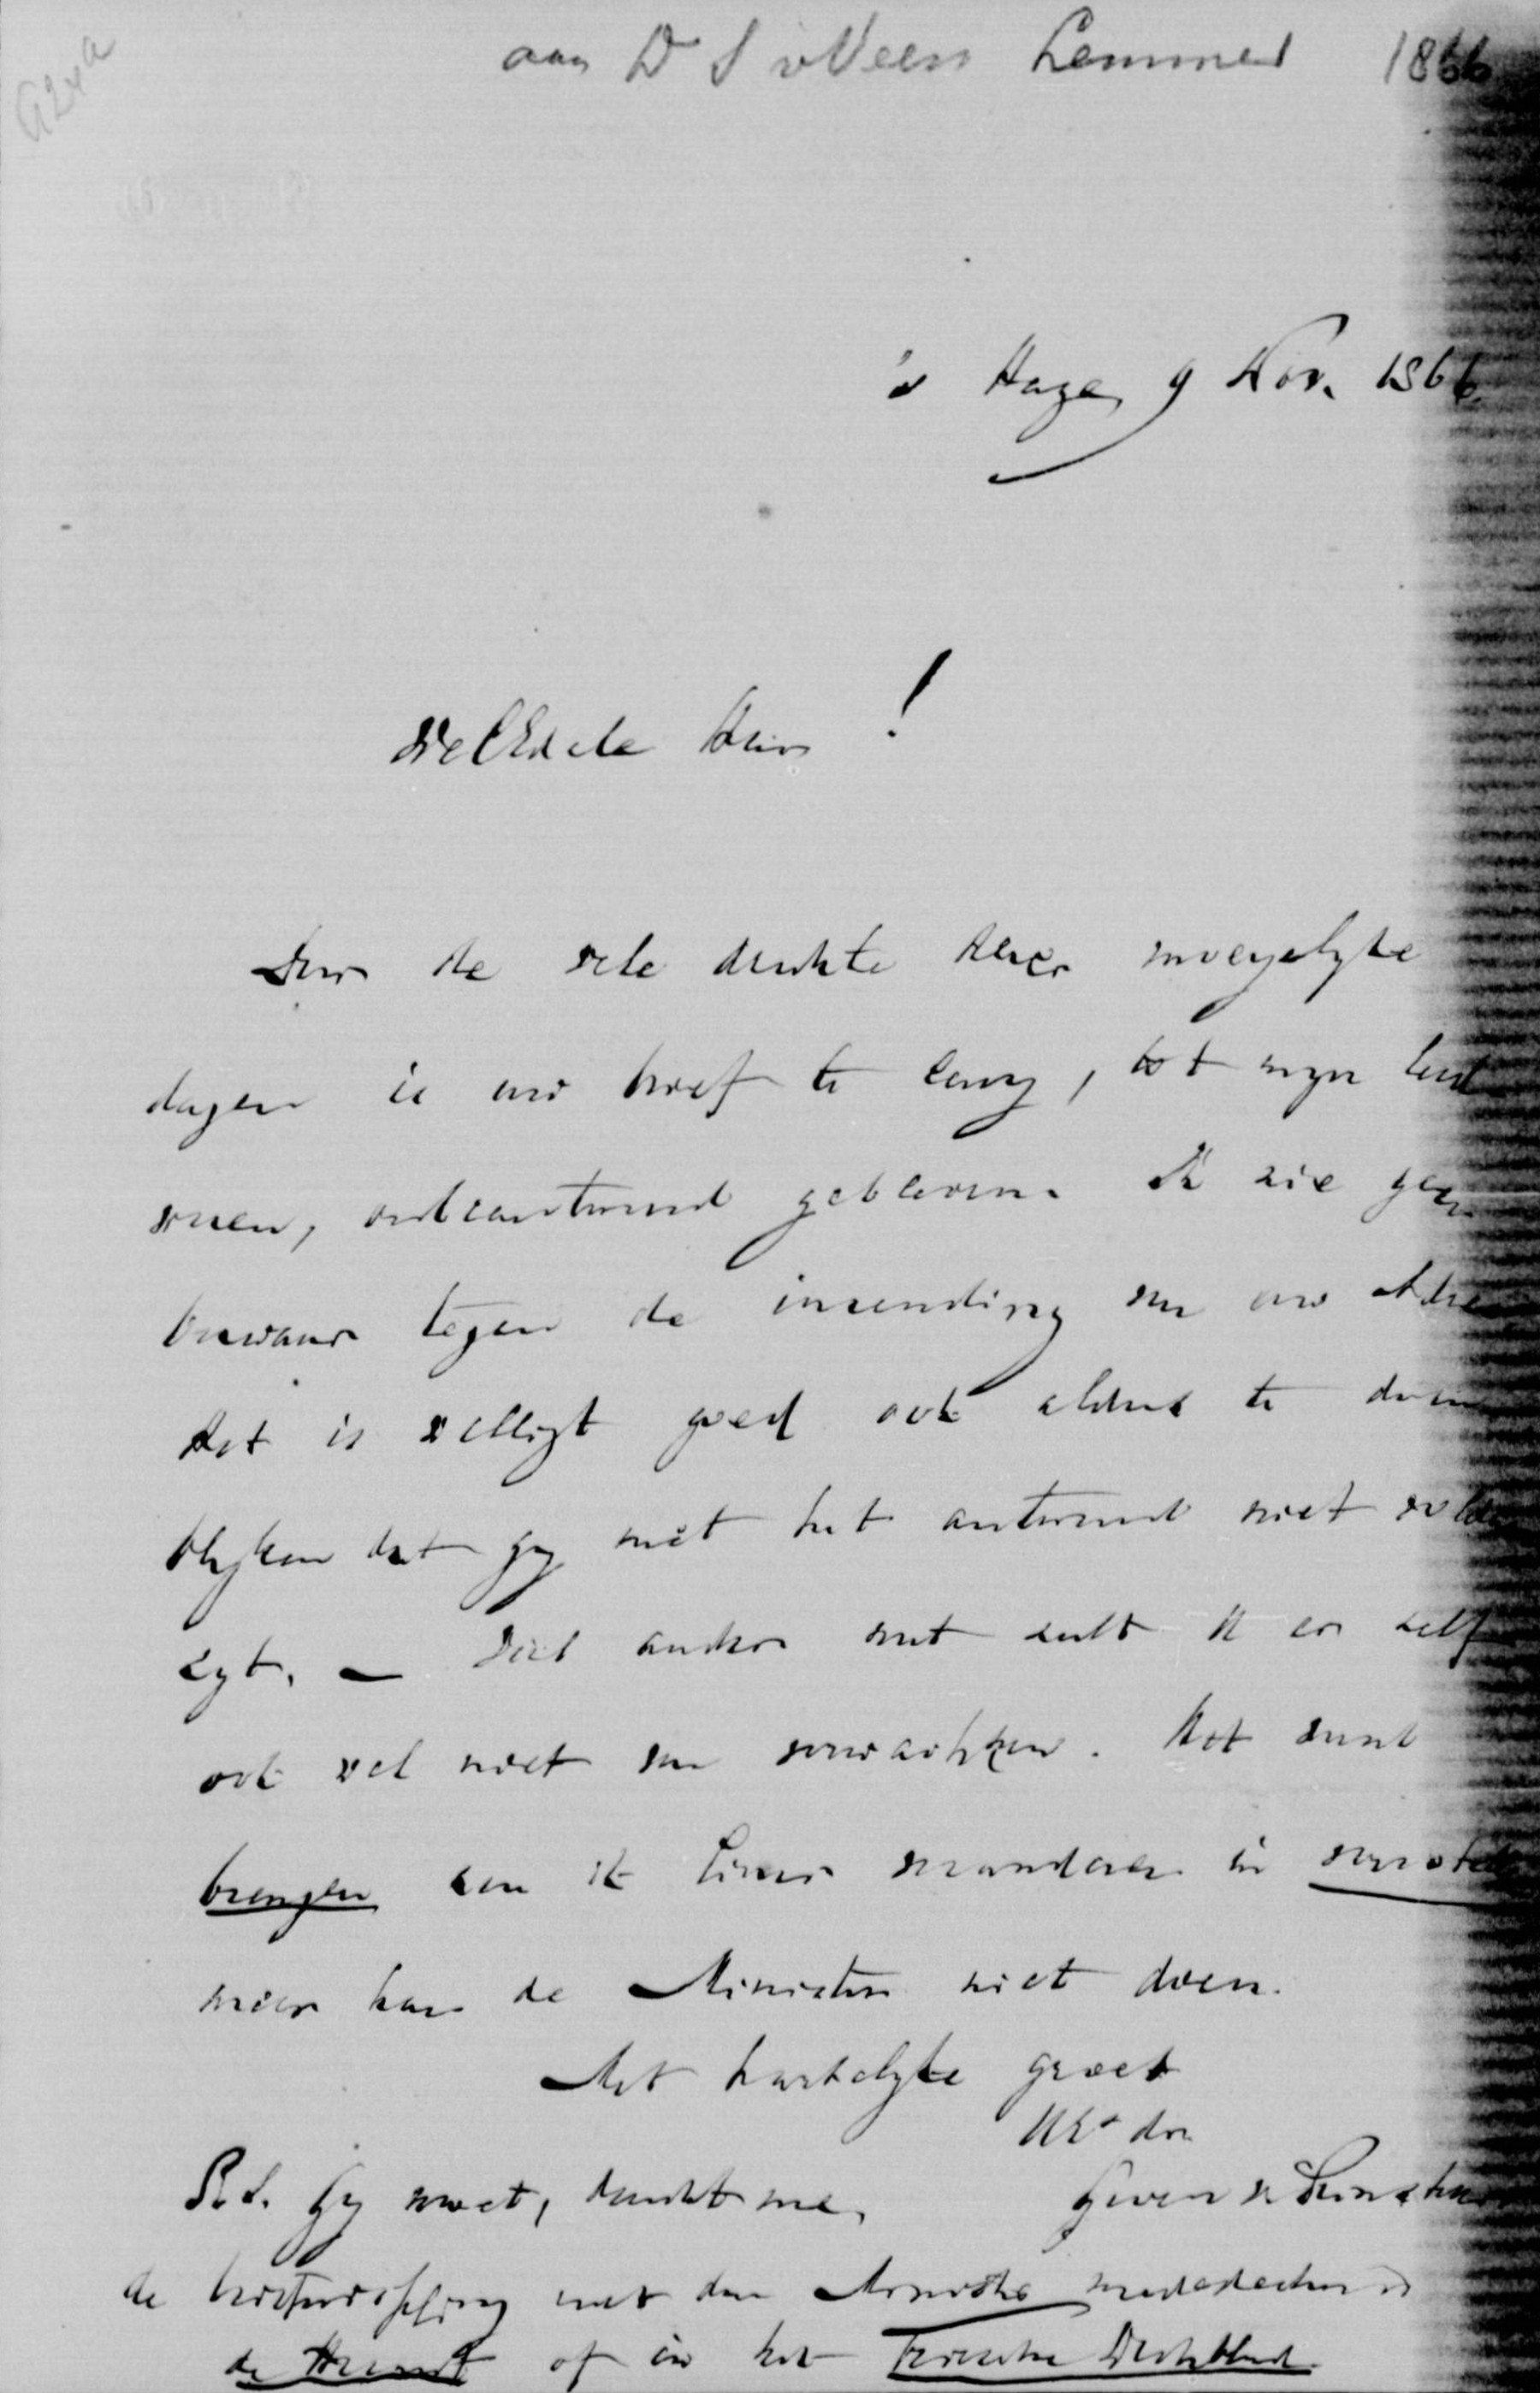 aan Ds S v Veen Lemmer 1866
's Hage, 9 Nov. 1866.
WelEdele Heer!
Door de vele drukte dezer moeyelyke
dagen is uw brief te lang, tot myn leed
wezen, onbeantwoord gebleven. Ik zie geen
bezwaar tegen de inzending van uw
Het is welligt goed ook aldus te doen
blyken dat gy met het antwoord niet
zyt. — Veel anders zult U er zelf
ook wel niet van verwachten. Het woord
brengen kan ik liever veranderen in
meer kan de Minister niet doen.
Met hartelyke groet
UEd dr
P.S. Gy moet, dunkt me, Groen v Prinsterer
de briefwisseling met den Minister mededeelen in
de Heraut of in het Friesche